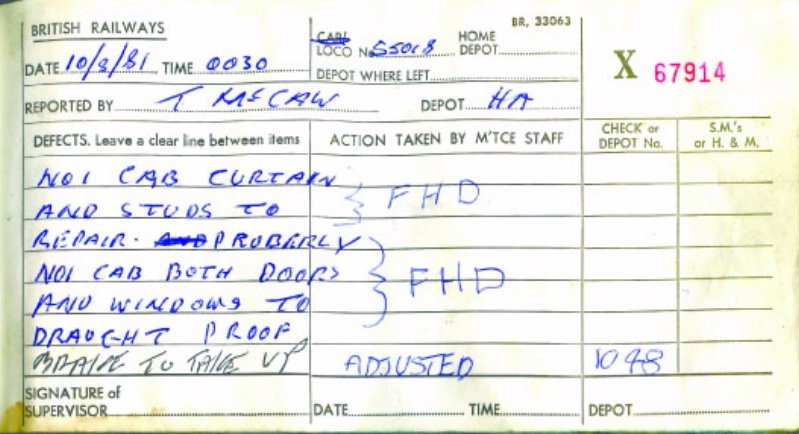 BRITISH RAILWAYS
BR. 33063
CAB/ LOCO No. 55018 HOME DEPOT
DATE 10/8/81 TIME 0030
DEPOT WHERE LEFT
X 67914
REPORTED BY T McCAW DEPOT HA
DEFECTS. Leave a clear line between items
ACTION TAKEN BY M'TCE STAFF
CHECK or DEPOT No.
S.M.'s or H. & M.
NO1 CAB CURTAIN
AND STUDS TO
FHD
REPAIR. AND PROBERLY
NO1 CAB BOTH DOORS
FHD
AND WINDOWS TO
DRAUGHT PROOF
BRAKE TO TAKE UP ADJUSTED 1048
SIGNATURE of SUPERVISOR DATE TIME DEPOT